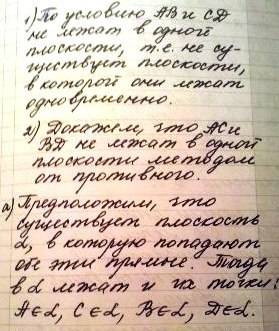 1) По условию АВ и СД
не лежат в одной
плоскости, т.е. не су-
ществует плоскости,
в которой они лежат
одновременно.
2) Докажем, что АС и
ВД не лежат в одной
плоскости методом
от противного.
а) Предположим, что
существует плоскость
α, в которую попадают
обе эти прямые. Тогда
в α лежат и их точки:
А∈α, С∈α, В∈α, Д∈α.